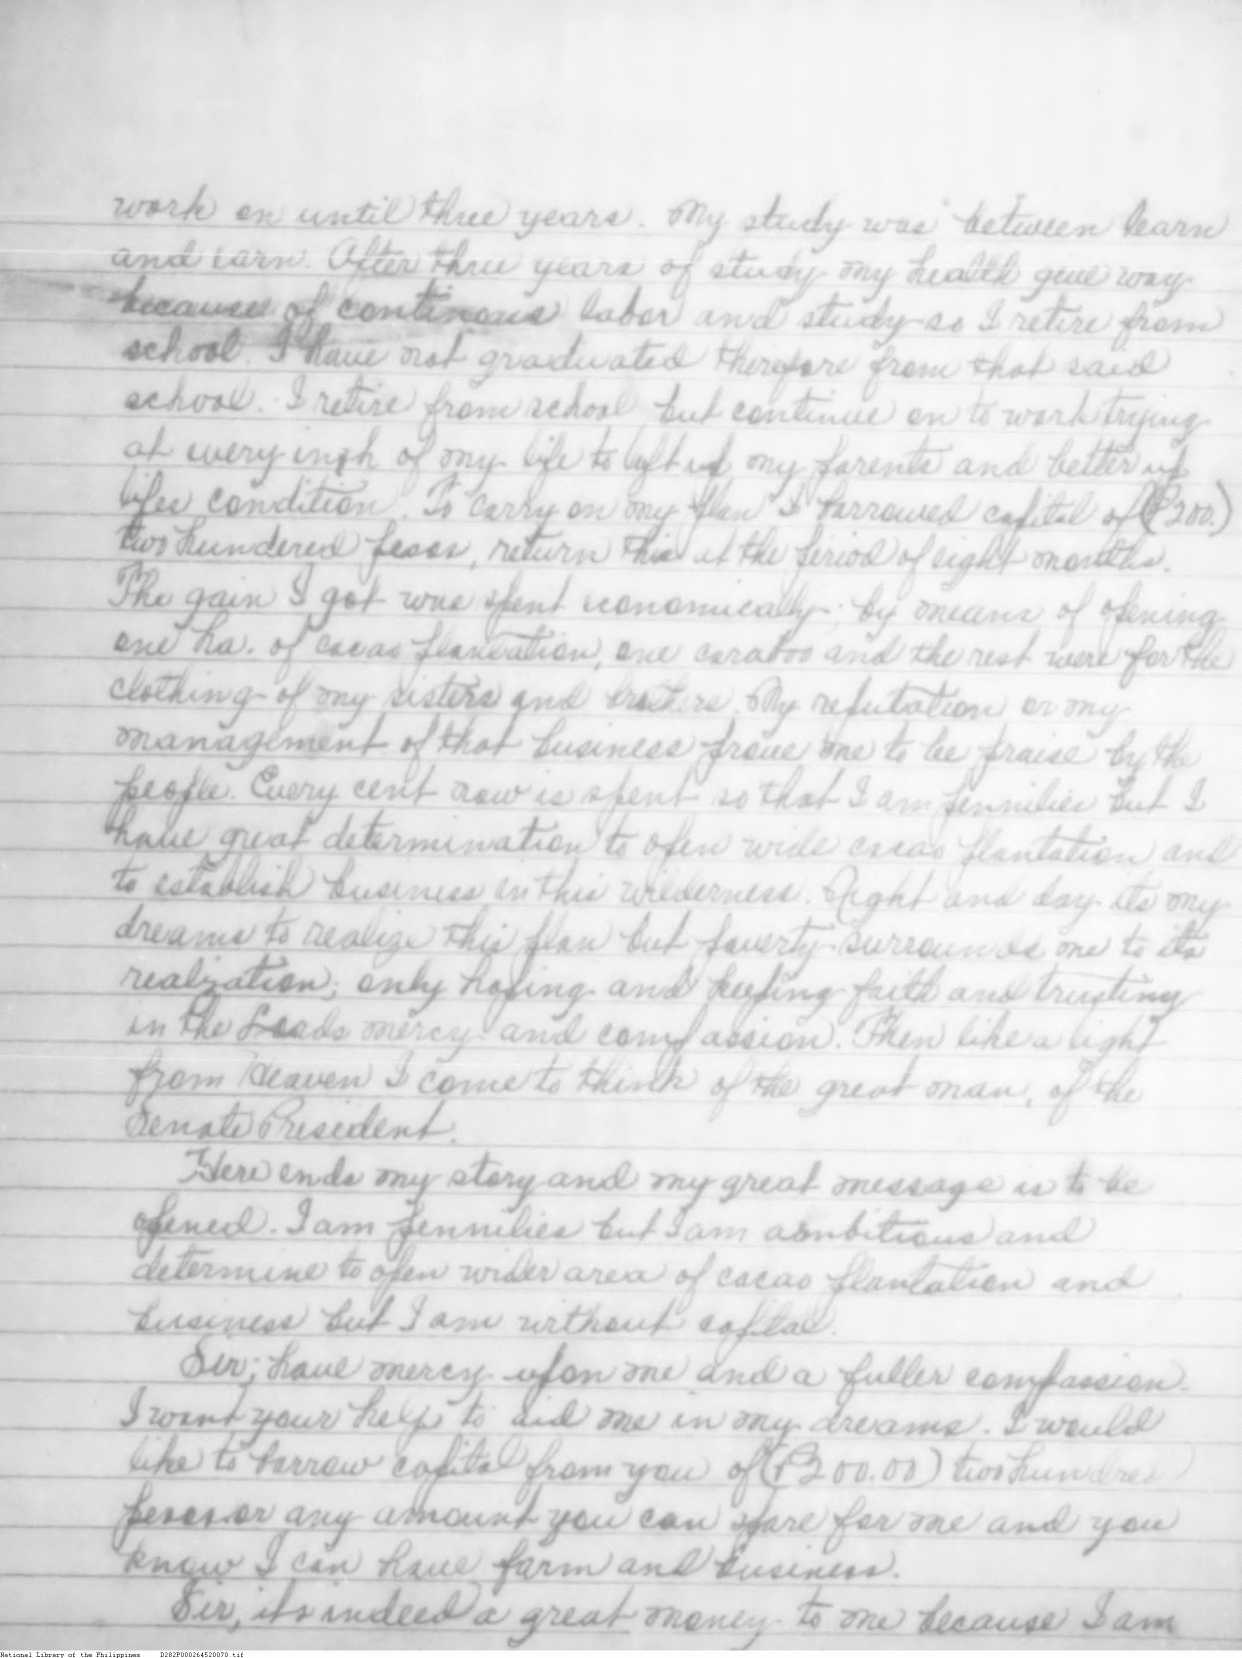 work on until three years. My study was between learn
and earn. After three years of study my health give way
because of continous labor and study so I retire from
school. I have not graduated therefore from that said
school. I retire from school but continue on to work trying
at every inch of my life to lift up my parents and better up
lifes condition. To carry on my plan I barrowed capital of (₱200.)
two hundered pesos, return this at the period of eight months.
The gain I got was spent economically by means of opening
one ha. of cacao plantation, one carabao and the rest were for the
clothing of my sisters and brothers. My reputation on my
management of that business prove me to be praise by the
people. Every cent now is spent so that I am pennilies but I
have great determination to open wide cacao plantation and
to establish business in this wilderness. Night and day its my
dreams to realize this plan but poverty surrounds me to its
realization; only hoping and keeping faith and trusting
in the Loads mercy and compassion. Then like a light
from Heaven I come to think of the great man, of the
Senate President.
Here ends my story and my great message is to be
opened. I am pennilies but I am ambitious and
determine to open wider area of cacao plantation and
business but I am without capital.
Sir; have mercy upon me and a fuller compassion.
I want your help to aid me in my dreams. I would
like to barrow capital from you of (₱200.00) two hundred
pesos or any amount you can spare for me and you
know I can have farm and business.
Sir, its indeed a great money to me because I am
National Library of the Philippines D282P000264520070.tif